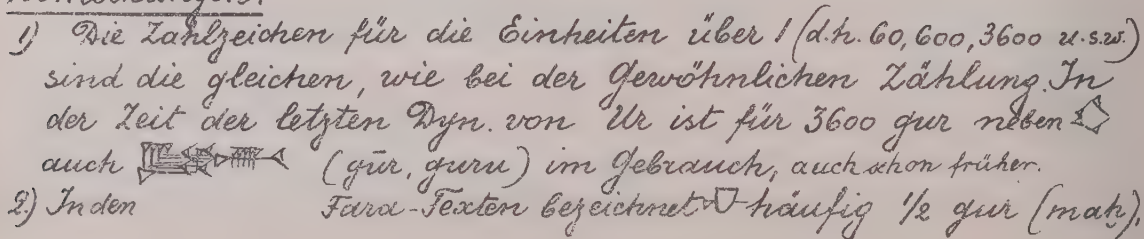 1) Die Zahlzeichen für die Einheiten über 1 (d.h. 60, 600, 3600 u.s.w.)
sind die gleichen, wie bei der Gewöhnlichen Zählung. In
der Zeit der letzten Dyn. von Ur ist für 3600 gur neben
auch (gūr, guru) im Gebrauch, auch schon früher.
2.) In den Fara-Texten bezeichnet häufig 1/2 gur (maḫ).